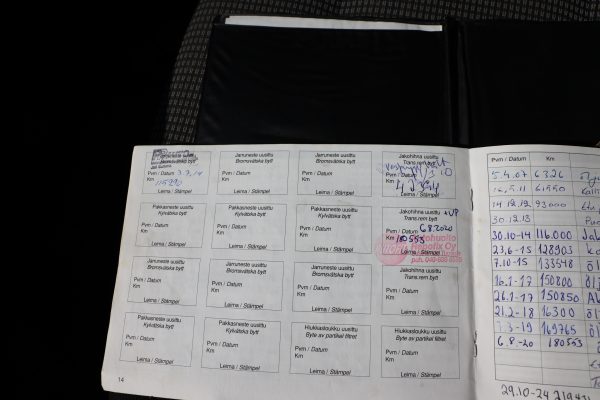 Jarruneste uusittu
Bromsvätska bytt
Pvm / Datum 3.7.14
Km 115290
Leima / Stämpel
Jarruneste uusittu
Bromsvätska bytt
Pvm / Datum
Km
Leima / Stämpel
Jarruneste uusittu
Bromsvätska bytt
Pvm / Datum
Km
Leima / Stämpel
Jakohihna uusittu
Trans.rem bytt
Pvm / Datum
Km
Leima / Stämpel
Pakkasneste uusittu
Kylvätska bytt
Pvm / Datum
Km
Leima / Stämpel
Pakkasneste uusittu
Kylvätska bytt
Pvm / Datum
Km
Leima / Stämpel
Pakkasneste uusittu
Kylvätska bytt
Pvm / Datum
Km
Leima / Stämpel
Jakohihna uusittu +VP
Trans.rem bytt
Pvm / Datum 6.8.2020
Km 180553
Leima / Stämpel
Jarruneste uusittu
Bromsvätska bytt
Pvm / Datum
Km
Leima / Stämpel
Jarruneste uusittu
Bromsvätska bytt
Pvm / Datum
Km
Leima / Stämpel
Jarruneste uusittu
Bromsvätska bytt
Pvm / Datum
Km
Leima / Stämpel
Jakohihna uusittu
Trans.rem bytt
Pvm / Datum
Km
Leima / Stämpel
Pakkasneste uusittu
Kylvätska bytt
Pvm / Datum
Km
Leima / Stämpel
Pakkasneste uusittu
Kylvätska bytt
Pvm / Datum
Km
Leima / Stämpel
Hiukkasloukku uusittu
Byte av partikel filtret
Pvm / Datum
Km
Leima / Stämpel
Hiukkasloukku uusittu
Byte av partikel filtret
Pvm / Datum
Km
Leima / Stämpel
14
Pvm / Datum Km
5.4.07 6326
14.12.12 93000
30.12.13
30.10-14 116.000
23.6-15 128903
7.10-15 133548
16.1-17 150800
26.1-17 150850
21.2-18 16300
169765
6.8.-20 180553
29.10-24